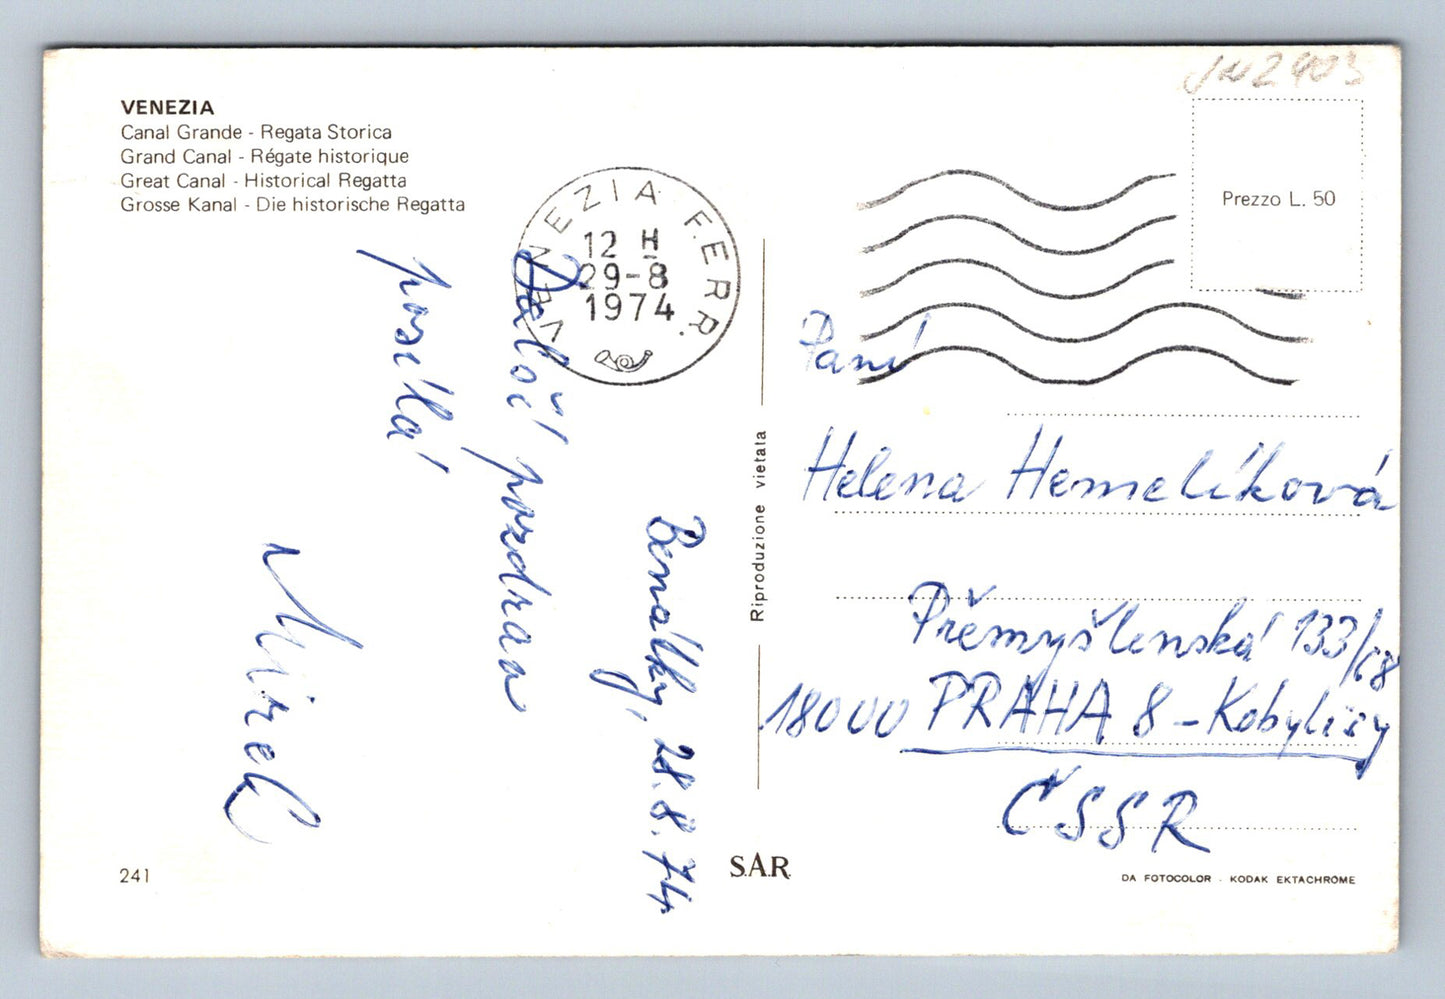 VENEZIA
Canal Grande - Regata Storica
Grand Canal - Régate historique
Great Canal - Historical Regatta
Grosse Kanal - Die historische Regatta
VENEZIA FERR.
12 H
29-8
1974
Prezzo L. 50
Benátky, 28.8.74
pozdrav
posílá
Mirek
Riproduzione vietata
Paní
Helena Hemelíková
Přemyšlenská 133/
18000 PRAHA 8 - Kobylisy
ČSSR
241
S.A.R.
DA FOTOCOLOR - KODAK EKTACHROME